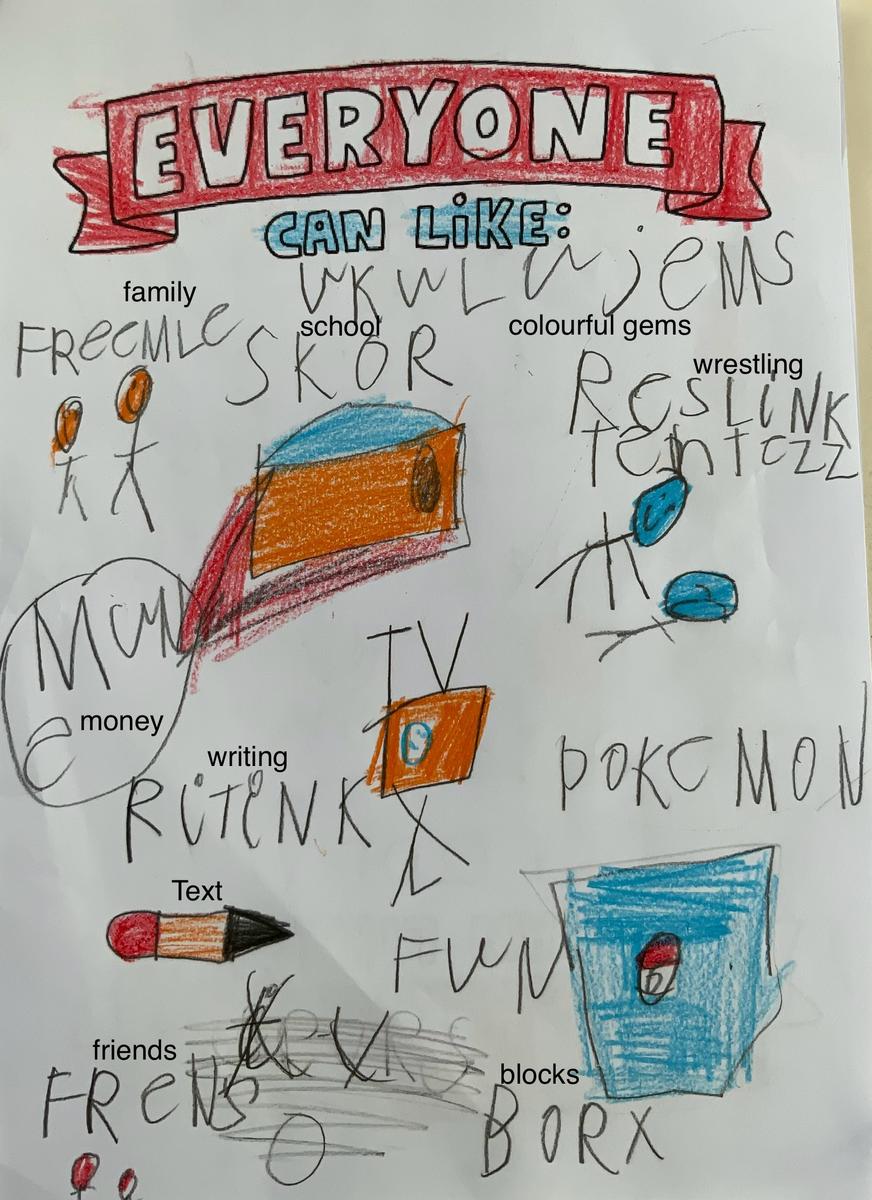 EVERYONE
CAN LiKE:
UKULU jEMS
family
school
colourful gems
FREEMLE
SKOR
wrestling
RESLiNK
TENTEZZ
MUN
E
money
TV
writing
RiTiNK
POKEMON
Text
FUN
friends
FRENS
blocks
BORX